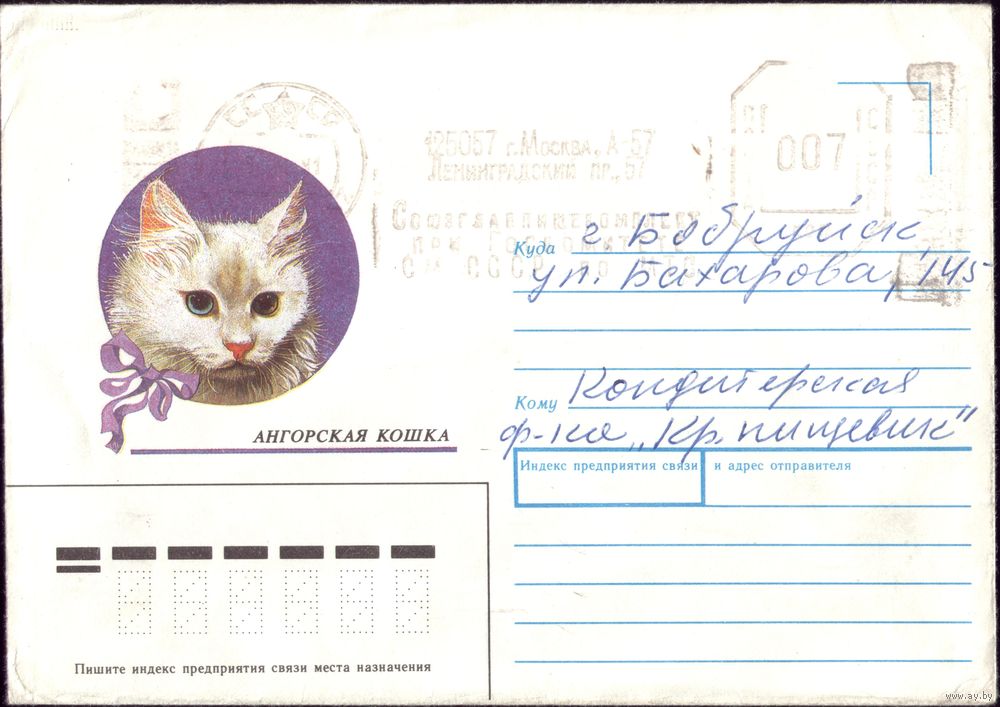 СССР
125057 г. Москва, А-57
Ленинградский пр., 57
007
Куда г. Бобруйск
ул. Бахарова, 145
Кому Кондитерская
ф-ка „Кр. пищевик"
АНГОРСКАЯ КОШКА
Индекс предприятия связи и адрес отправителя
Пишите индекс предприятия связи места назначения
www.ay.by